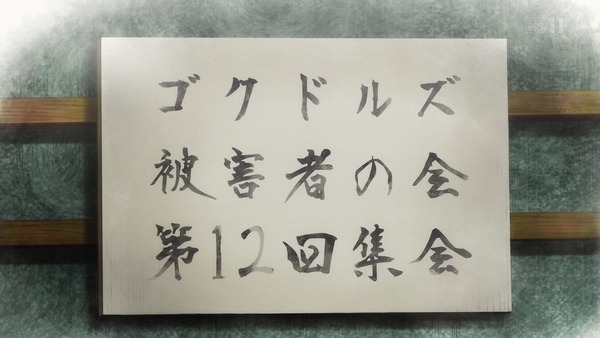 ゴクドルズ
被害者の会
第12回集会